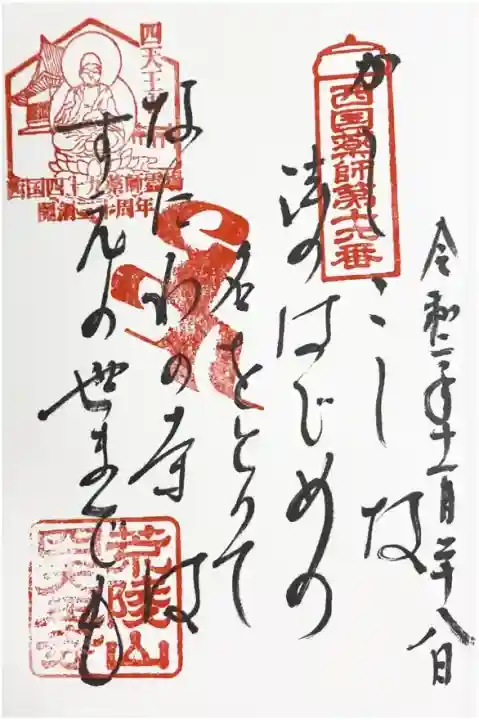 令和二年十一月二十八日
西国薬師第十六番
法のはじめの
名をとりて
なにわの寺は
すえの世までも
四天王寺
西国四十九薬師霊場
開創三十周年
荒陵山
四天王寺